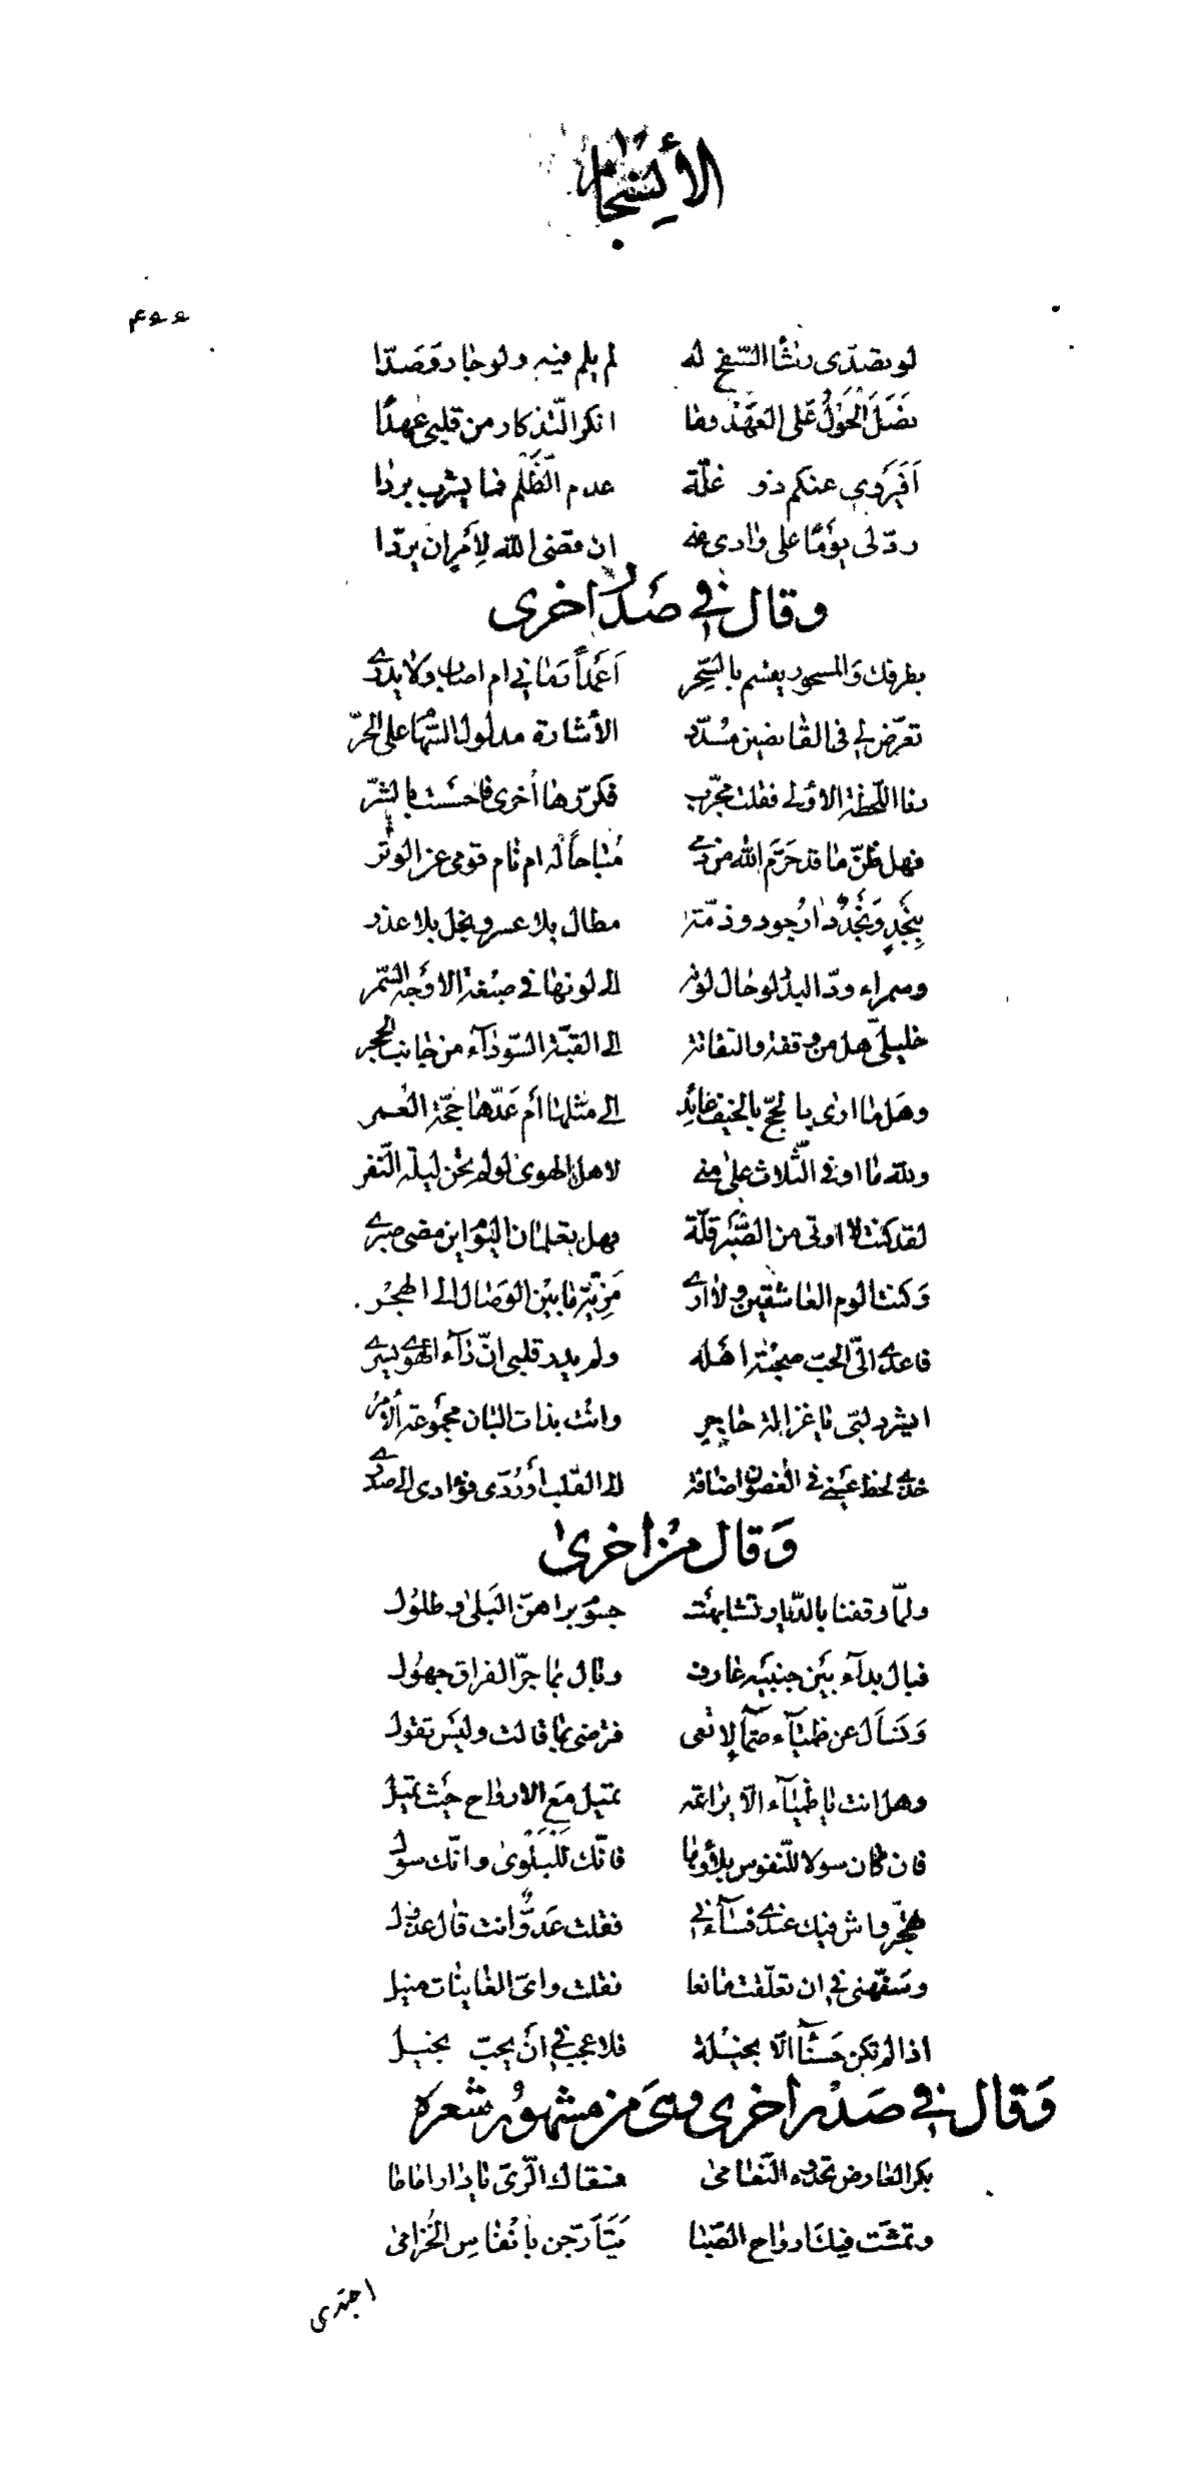 الأنسجام
لو تصدّى رشأ السّفح له لم يلم فيه ولو جار وصدّا
نضل الحول على العهد وما انكر التذكار من قلبى عهدا
أفيروى عنكم ذو غلّة عدم الظلم فما يشرب بردا
ردّ لى يوما على وادى منه ان قضى الله لأمر ان يردّا
وقال في صدر اخرى
بطرفك والمسحور يقسم بالسّحر أعمداً رمانى ام اصاب ولا يدرى
تعرّض لى فى القانصين مسدّد الأشارة مدلول السّهام على النحر
رنا اللحظة الاولى فقلت مجرّب فكرّرها أخرى فاحسست بالشرّ
فهل ظنّ ما قد حرّم الله من دمى مباحاً له ام نام قومى عن الوتر
بنجد ونجد دار جود وذمّة مطال بلا عسر وبخل بلا عذر
وسمراء ودّ البدر لو حال لونه الى لونها فى صبغة الاوجه السّمر
خليلىّ هل من وقفة والتفاتة الى القبّة السّوداء من جانب الحجر
وهل ما ارى بالحجّ بالخيف عائد الى مثلها أم عدّها حجّة العمر
ولله ما اوفى الثّلاث على منى لاهل الهوى لو لم تحن ليلة النّفر
لقد كنت لا اوتى من الصّبر قلّة فهل تعلمان اليوم اين مضى صبرى
وكنت الوم العاشقين ولا ارى مزيّة ما بين الوصال الى الهجر
فاعدى الىّ الحبّ صحبة اهله ولم يدر قلبى انّ داء الهوى يسرى
ايشرد لبّى يا غزالة حاجر وانت بذات البان مجموعة الأمر
خذى لحظ عينى فى الغصون اضافة الى القلب أو ردّى فؤادى الى صدرى
وقال من اخرى
ولمّا وقفنا بالدّيار تشابهت جسوم براهنّ البلى وطلول
فباك بداء بين جنبيه عارف وباك بما جرّ الفراق جهول
ونسأل عن ظمياء صمّا لا تعى فنرضى بما قالت وليس تقول
وهل انت يا ظمياء الّا يراعة تميل مع الارواح حيث تميل
فان كان سولا للنّفوس بلاؤها فانّك للبلوى وانّك سول
وواش فيك عندى فساءنى فقلت عدوّ انت قال عذول
وسفّهنى فى ان تعلّقت مانعا فقلت واىّ الغانيات منيل
اذا لم تكن حسناً الّا بخيلة فلا عجب فى أن يحبّ بخيل
وقال فى صدر أخرى وهى من مشهور شعره
بكر العارض تحدوه النّعامى فسقاك الرّىّ يا دار اماما
وتمشّت فيك ارواح الصّبا يتأرّجن بأنفاس الخزامى
اجتدى